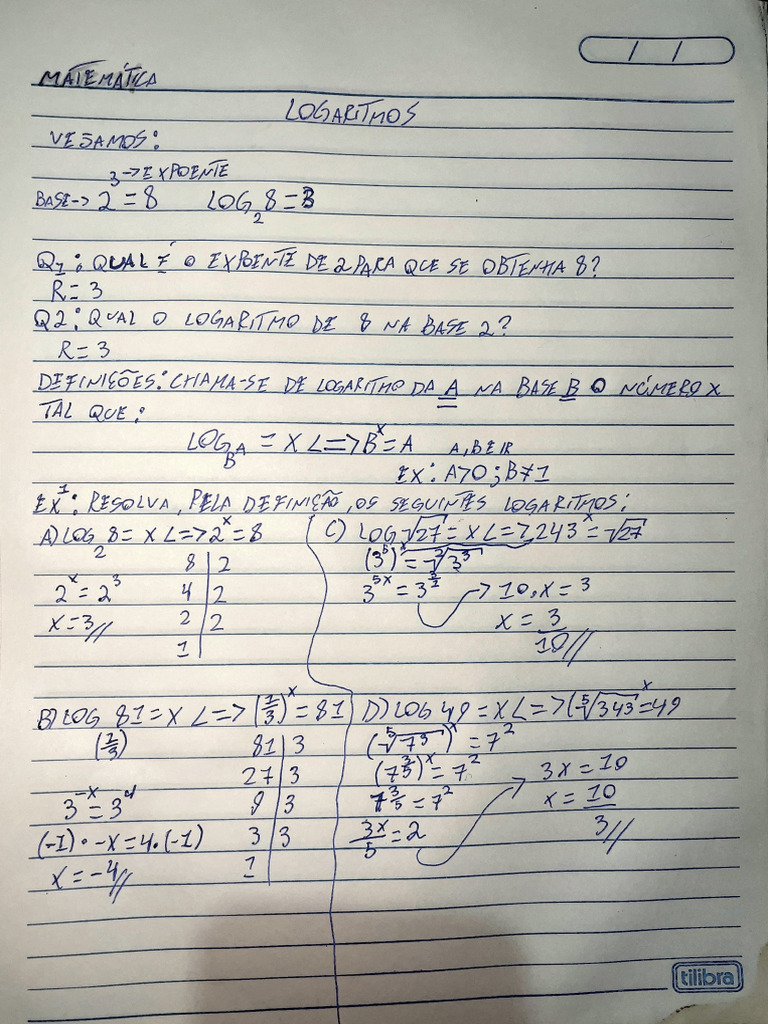 MATEMÁTICA
LOGARITMOS
VEJAMOS:
3->EXPOENTE
BASE-> 2 = 8 LOG₂ 8 = 3
Q1: QUAL É O EXPOENTE DE 2 PARA QUE SE OBTENHA 8?
R = 3
Q2: QUAL O LOGARITMO DE 8 NA BASE 2?
R = 3
DEFINIÇÕES: CHAMA-SE DE LOGARITMO DA A NA BASE B O NÚMERO X
TAL QUE:
LOG_B A = X <=> B^x = A A, B E IR
EX: A>0; B≠1
EX¹: RESOLVA, PELA DEFINIÇÃO, OS SEGUINTES LOGARITMOS:
A) LOG₂ 8 = X <=> 2^x = 8
8 | 2
2^x = 2^3 4 | 2
X = 3// 2 | 2
1
C) LOG √27 = X <=> 243^x = √27
(3^5)^x = ²√3^3
3^5x = 3^3/2 10.X = 3
X = 3/10//
B) LOG 81 = X <=> (1/3)^x = 81
(1/3) 81 | 3
27 | 3
3^-x = 3^4 9 | 3
(-1) · -X = 4 · (-1) 3 | 3
X = -4// 1
D) LOG 49 = X <=> (⁵√343^x = 49
(⁵√7^3)^x = 7^2
(7^3/5)^x = 7^2 3X = 10
7^3/5 = 7^2 X = 10/3//
3X/5 = 2
tilibra